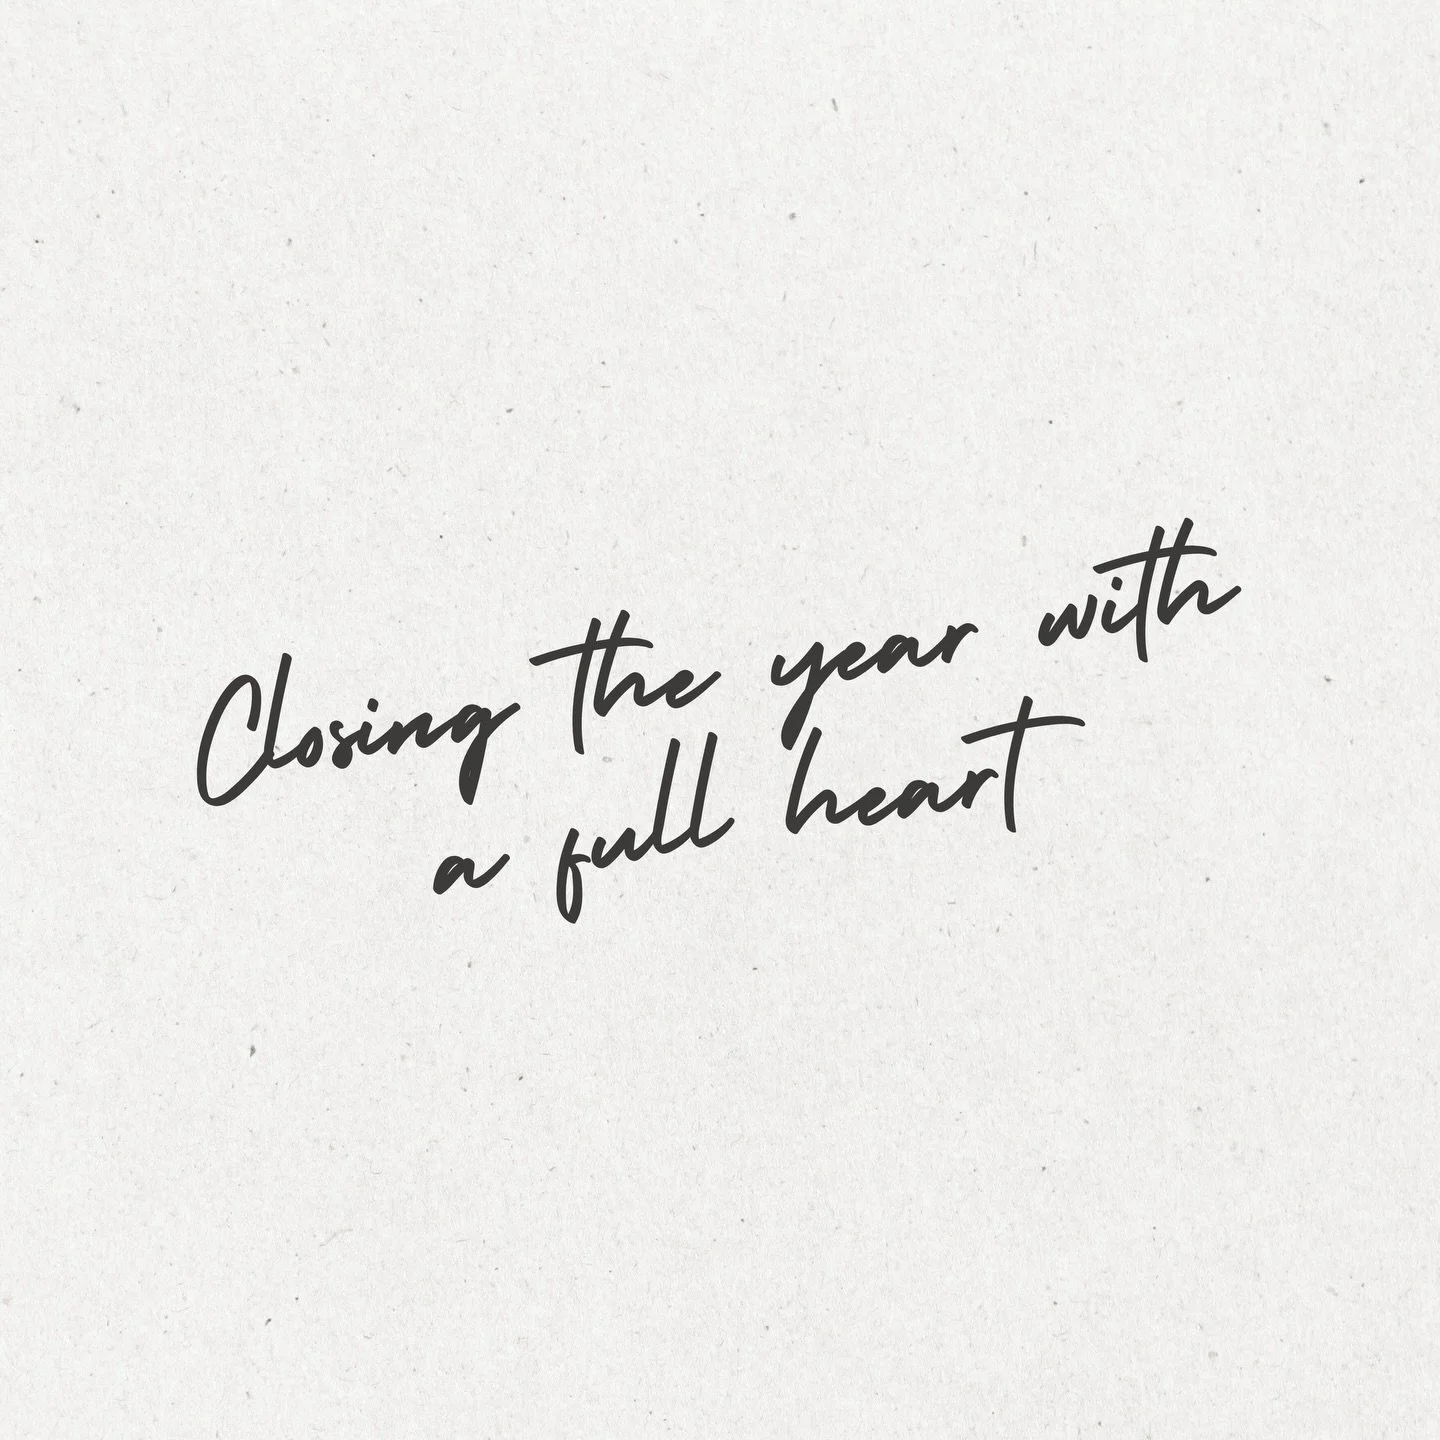 Closing the year with
a full heart